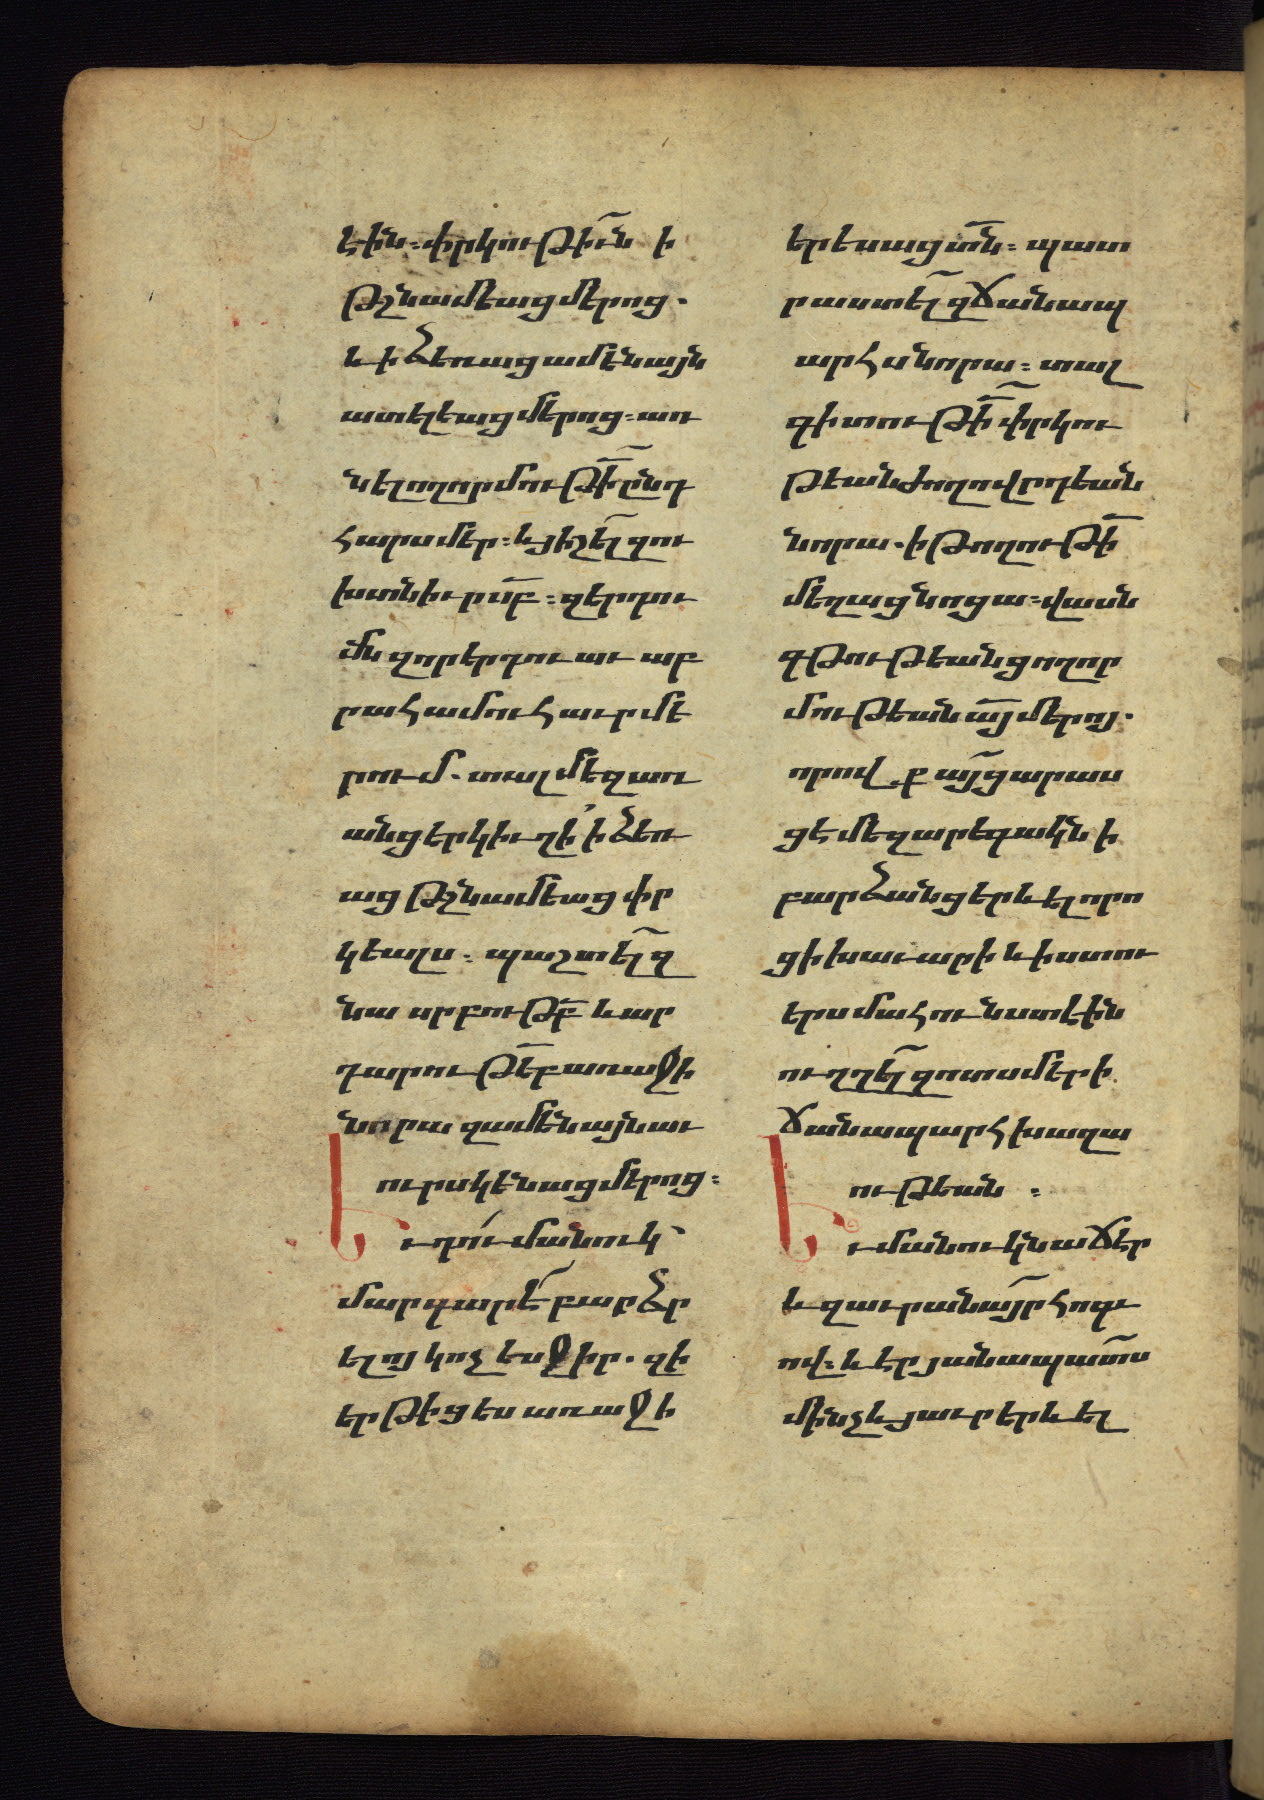 էին։ փրկութի՟ւն ի
թշնամեաց մերոց.
և ի ձեռաց ամենայն
ատելեաց մերոց։ առ
նել ողորմութի՟ ընդ
հարս մեր։ և յիշել՟ զու
խտն իւր ս՟բ։ զերդու
մն զոր երդուաւ աբ
րահամու հաւր մե
րում. տալ մեզ առ
անց երկիւղի՛ ի ձեռ
աց թշնամեաց փր
կեալս։ պաշտել՟ զ
նա սրբութբ՟ և ար
դարութե՟բ առաջի
նորա զամենայն աւ
ուրս կենաց մերոց։
Եւ դո՛ւ մանուկ՝
մարգարէ՟ բարձր
ելոյ կոչեսջիր. զի
երթիցես առաջի
երեսաց տն՟։ պատ
րաստել՟ զճանապ
արհս նորա։ տալ
գիտութի՟ փրկու
թեան ժողովրդեան
նորա. ի թողութի՟
մեղաց նոցա։ վասն
գթութեանց ողոր
մութեան ա՟յ մերոյ.
որովք այ՟ց արաս
ցէ մեզ արեգակն ի
բարձանց երևել որո
ց ի խաւարի և ի ստու
երս մահու նստէին
ուղղել՟ զոտս մեր ի
ճանապարհ խաղա
ղութեան։
Եւ մանուկն աճէր
և զաւրանայր՟ հոգւ
ով։ և էր յանապատս՟
մինչև յաւր երևել